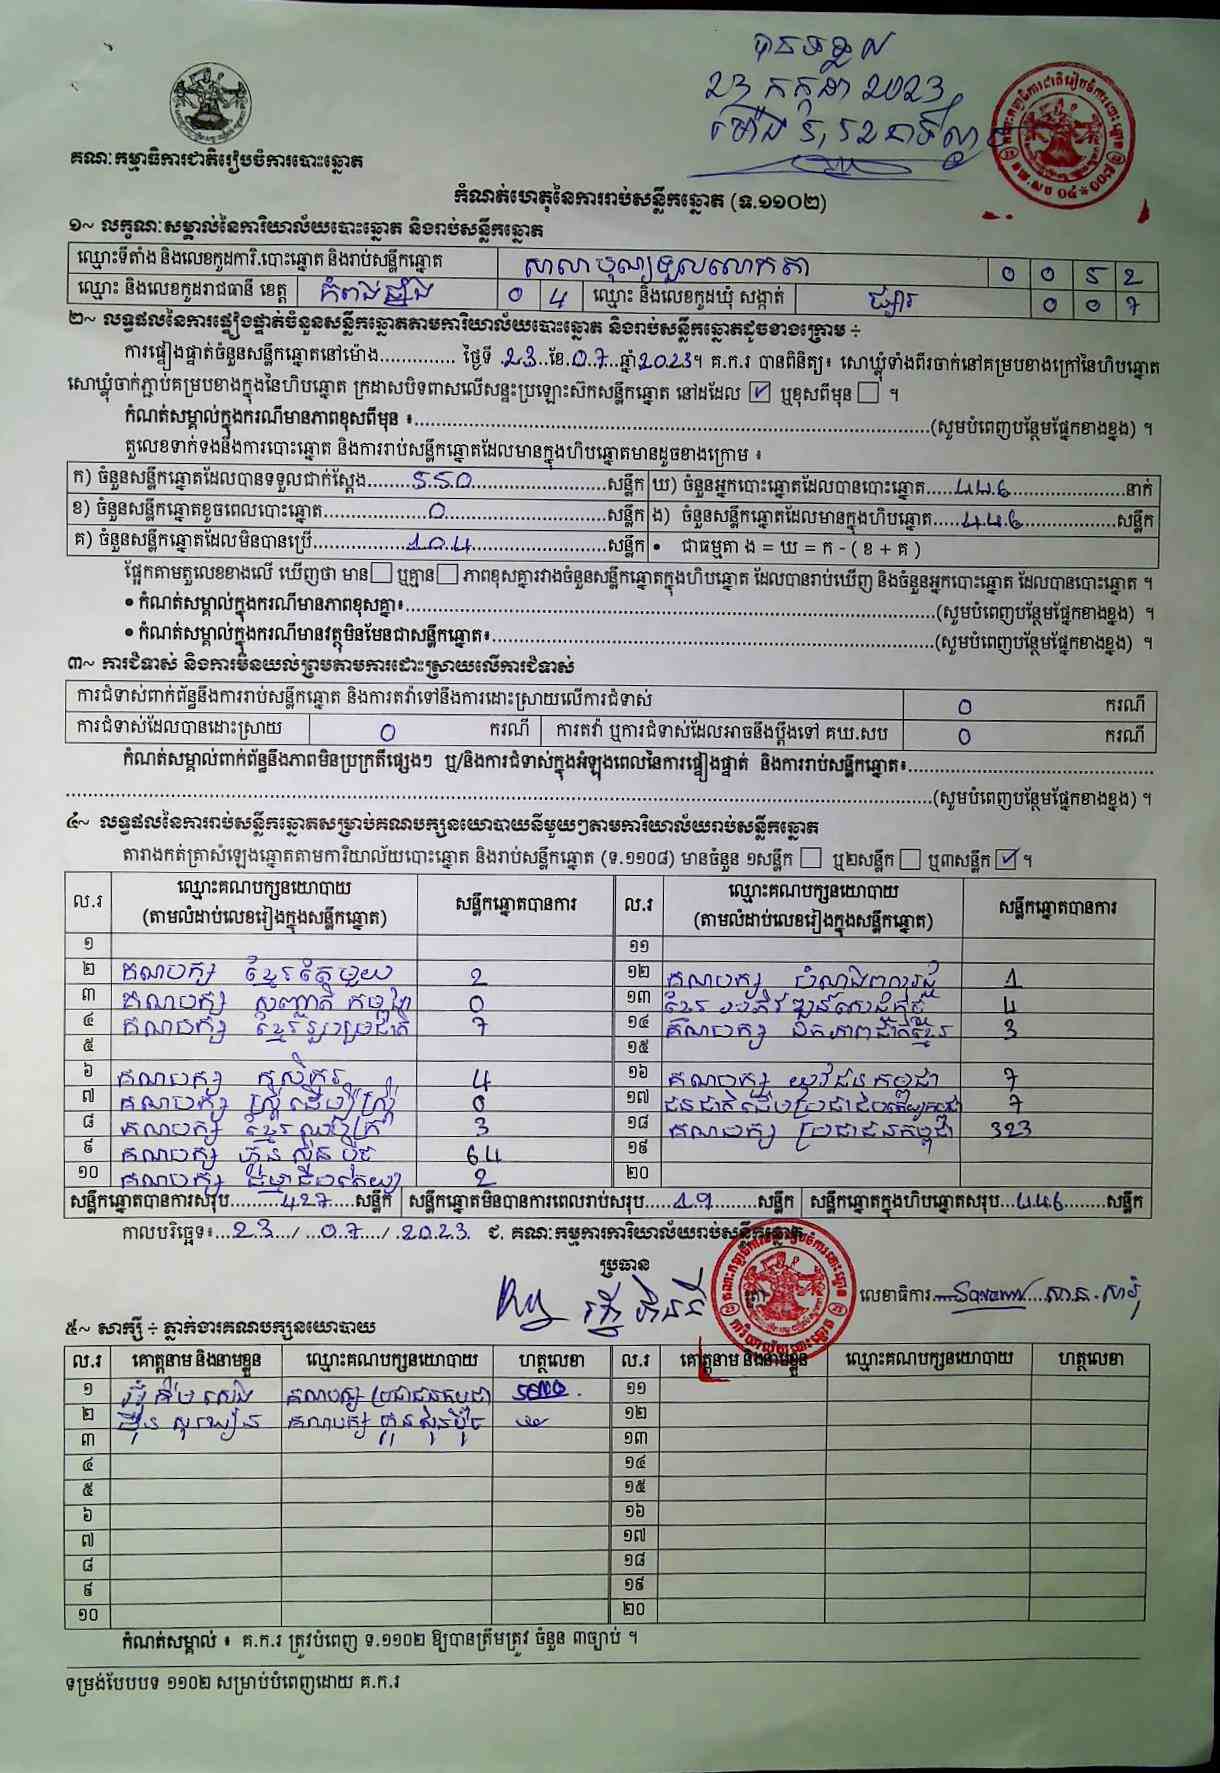 បានទទួល
23 កក្កដា 2023
គណៈកម្មាធិការជាតិរៀបចំការបោះឆ្នោត
កំណត់ហេតុនៃការរាប់សន្លឹកឆ្នោត (ទ.១១០២)
១~ លក្ខណៈសម្គាល់នៃការិយាល័យបោះឆ្នោត និងរាប់សន្លឹកឆ្នោត
ឈ្មោះទីតាំង និងលេខកូដការិ.បោះឆ្នោត និងរាប់សន្លឹកឆ្នោត សាលាបុណ្យទួលលោកតា 0 0 5 2
ឈ្មោះ និងលេខកូដរាជធានី ខេត្ត កំពង់ឆ្នាំង 0 4 ឈ្មោះ និងលេខកូដឃុំ សង្កាត់ ផ្សារ 0 0 7
២~ លទ្ធផលនៃការផ្ទៀងផ្ទាត់ចំនួនសន្លឹកឆ្នោតតាមការិយាល័យបោះឆ្នោត និងរាប់សន្លឹកឆ្នោតដូចខាងក្រោម ÷
ការផ្ទៀងផ្ទាត់ចំនួនសន្លឹកឆ្នោតនៅម៉ោង.............. ថ្ងៃទី .23..ខែ.07...ឆ្នាំ2023។ គ.ក.រ បានពិនិត្យ៖ សោឃ្លុំទាំងពីរចាក់នៅគម្របខាងក្រៅនៃហិបឆ្នោត
សោឃ្លុំចាក់ភ្ជាប់គម្របខាងក្នុងនៃហិបឆ្នោត ក្រដាសបិទពាសលើសន្ទះប្រឡោះស៊កសន្លឹកឆ្នោត នៅដដែល ☑ ឬខុសពីមុន ☐ ។
កំណត់សម្គាល់ក្នុងករណីមានភាពខុសពីមុន ៖..........(សូមបំពេញបន្ថែមផ្នែកខាងខ្នង) ។
តួលេខទាក់ទងនឹងការបោះឆ្នោត និងការរាប់សន្លឹកឆ្នោតដែលមានក្នុងហិបឆ្នោតមានដូចខាងក្រោម ៖
ក) ចំនួនសន្លឹកឆ្នោតដែលបានទទួលជាក់ស្តែង........550........សន្លឹក ឃ) ចំនួនអ្នកបោះឆ្នោតដែលបានបោះឆ្នោត.....446........នាក់
ខ) ចំនួនសន្លឹកឆ្នោតខូចពេលបោះឆ្នោត........0........សន្លឹក ង) ចំនួនសន្លឹកឆ្នោតដែលមានក្នុងហិបឆ្នោត.....446........សន្លឹក
គ) ចំនួនសន្លឹកឆ្នោតដែលមិនបានប្រើ........104........សន្លឹក • ជាធម្មតា ង = ឃ = ក - ( ខ + គ )
ផ្អែកតាមតួលេខខាងលើ ឃើញថា មាន☐ ឬគ្មាន☐ ភាពខុសគ្នារវាងចំនួនសន្លឹកឆ្នោតក្នុងហិបឆ្នោត ដែលបានរាប់ឃើញ និងចំនួនអ្នកបោះឆ្នោត ដែលបានបោះឆ្នោត ។
• កំណត់សម្គាល់ក្នុងករណីមានភាពខុសគ្នា៖..........(សូមបំពេញបន្ថែមផ្នែកខាងខ្នង) ។
• កំណត់សម្គាល់ក្នុងករណីមានវត្ថុមិនមែនជាសន្លឹកឆ្នោត៖..........(សូមបំពេញបន្ថែមផ្នែកខាងខ្នង) ។
៣~ ការជំទាស់ និងការមិនយល់ព្រមតាមការដោះស្រាយលើការជំទាស់
ការជំទាស់ពាក់ព័ន្ធនឹងការរាប់សន្លឹកឆ្នោត និងការតវ៉ាទៅនឹងការដោះស្រាយលើការជំទាស់ 0 ករណី
ការជំទាស់ដែលបានដោះស្រាយ 0 ករណី ការតវ៉ា ឬការជំទាស់ដែលអាចនឹងប្តឹងទៅ គឃ.សប 0 ករណី
កំណត់សម្គាល់ពាក់ព័ន្ធនឹងភាពមិនប្រក្រតីផ្សេងៗ ឬ/និងការជំទាស់ក្នុងអំឡុងពេលនៃការផ្ទៀងផ្ទាត់ និងការរាប់សន្លឹកឆ្នោត៖..........
..........(សូមបំពេញបន្ថែមផ្នែកខាងខ្នង) ។
៤~ លទ្ធផលនៃការរាប់សន្លឹកឆ្នោតសម្រាប់គណបក្សនយោបាយនីមួយៗតាមការិយាល័យរាប់សន្លឹកឆ្នោត
តារាងកត់ត្រាសំឡេងឆ្នោតតាមការិយាល័យបោះឆ្នោត និងរាប់សន្លឹកឆ្នោត (ទ.១១០៨) មានចំនួន ១សន្លឹក ☐ ឬ២សន្លឹក ☐ ឬ៣សន្លឹក ☑ ។
ល.រ ឈ្មោះគណបក្សនយោបាយ សន្លឹកឆ្នោតបានការ ល.រ ឈ្មោះគណបក្សនយោបាយ សន្លឹកឆ្នោតបានការ
(តាមលំដាប់លេខរៀងក្នុងសន្លឹកឆ្នោត) (តាមលំដាប់លេខរៀងក្នុងសន្លឹកឆ្នោត)
១ ១១
២ គណបក្ស ខ្មែរតែមួយ 2 ១២ គណបក្ស 1
៣ គណបក្ស សញ្ជាតិកម្ពុជា 0 ១៣ ខ្មែរអភិវឌ្ឍន៍សេដ្ឋកិច្ច 4
៤ គណបក្ស ខ្មែររួបរួមជាតិ 7 ១៤ គណបក្ស ឯកភាពជាតិខ្មែរ 3
៥ ១៥
៦ គណបក្ស កសិករ 4 ១៦ គណបក្ស យុវជនកម្ពុជា 7
៧ គណបក្ស ស្ត្រីដើម្បីស្ត្រី 0 ១៧ ជនជាតិដើមប្រជាធិបតេយ្យកម្ពុជា 7
៨ គណបក្ស ខ្មែរឈប់ក្រ 3 ១៨ គណបក្ស ប្រជាជនកម្ពុជា 323
៩ គណបក្ស ហ៊្វុនស៊ិនប៉ិច 64 ១៩
១០ គណបក្ស ធម្មាធិបតេយ្យ 2 ២០
សន្លឹកឆ្នោតបានការសរុប.........427.....សន្លឹក សន្លឹកឆ្នោតមិនបានការពេលរាប់សរុប.....19.......សន្លឹក សន្លឹកឆ្នោតក្នុងហិបឆ្នោតសរុប...446.......សន្លឹក
កាលបរិច្ឆេទ៖...23.../...07.../.2023. ជ. គណៈកម្មការការិយាល័យរាប់សន្លឹកឆ្នោត
ប្រធាន
លេខាធិការ
៥~ សាក្សី ÷ ភ្នាក់ងារគណបក្សនយោបាយ
ល.រ គោត្តនាម និងនាមខ្លួន ឈ្មោះគណបក្សនយោបាយ ហត្ថលេខា ល.រ គោត្តនាម និងនាមខ្លួន ឈ្មោះគណបក្សនយោបាយ ហត្ថលេខា
១ គណបក្ស ប្រជាជនកម្ពុជា ១១
២ គណបក្ស ហ៊្វុនស៊ិនប៉ិច ១២
៣ ១៣
៤ ១៤
៥ ១៥
៦ ១៦
៧ ១៧
៨ ១៨
៩ ១៩
១០ ២០
កំណត់សម្គាល់ ៖ គ.ក.រ ត្រូវបំពេញ ទ.១១០២ ឱ្យបានត្រឹមត្រូវ ចំនួន ៣ច្បាប់ ។
ទម្រង់បែបបទ ១១០២ សម្រាប់បំពេញដោយ គ.ក.រ